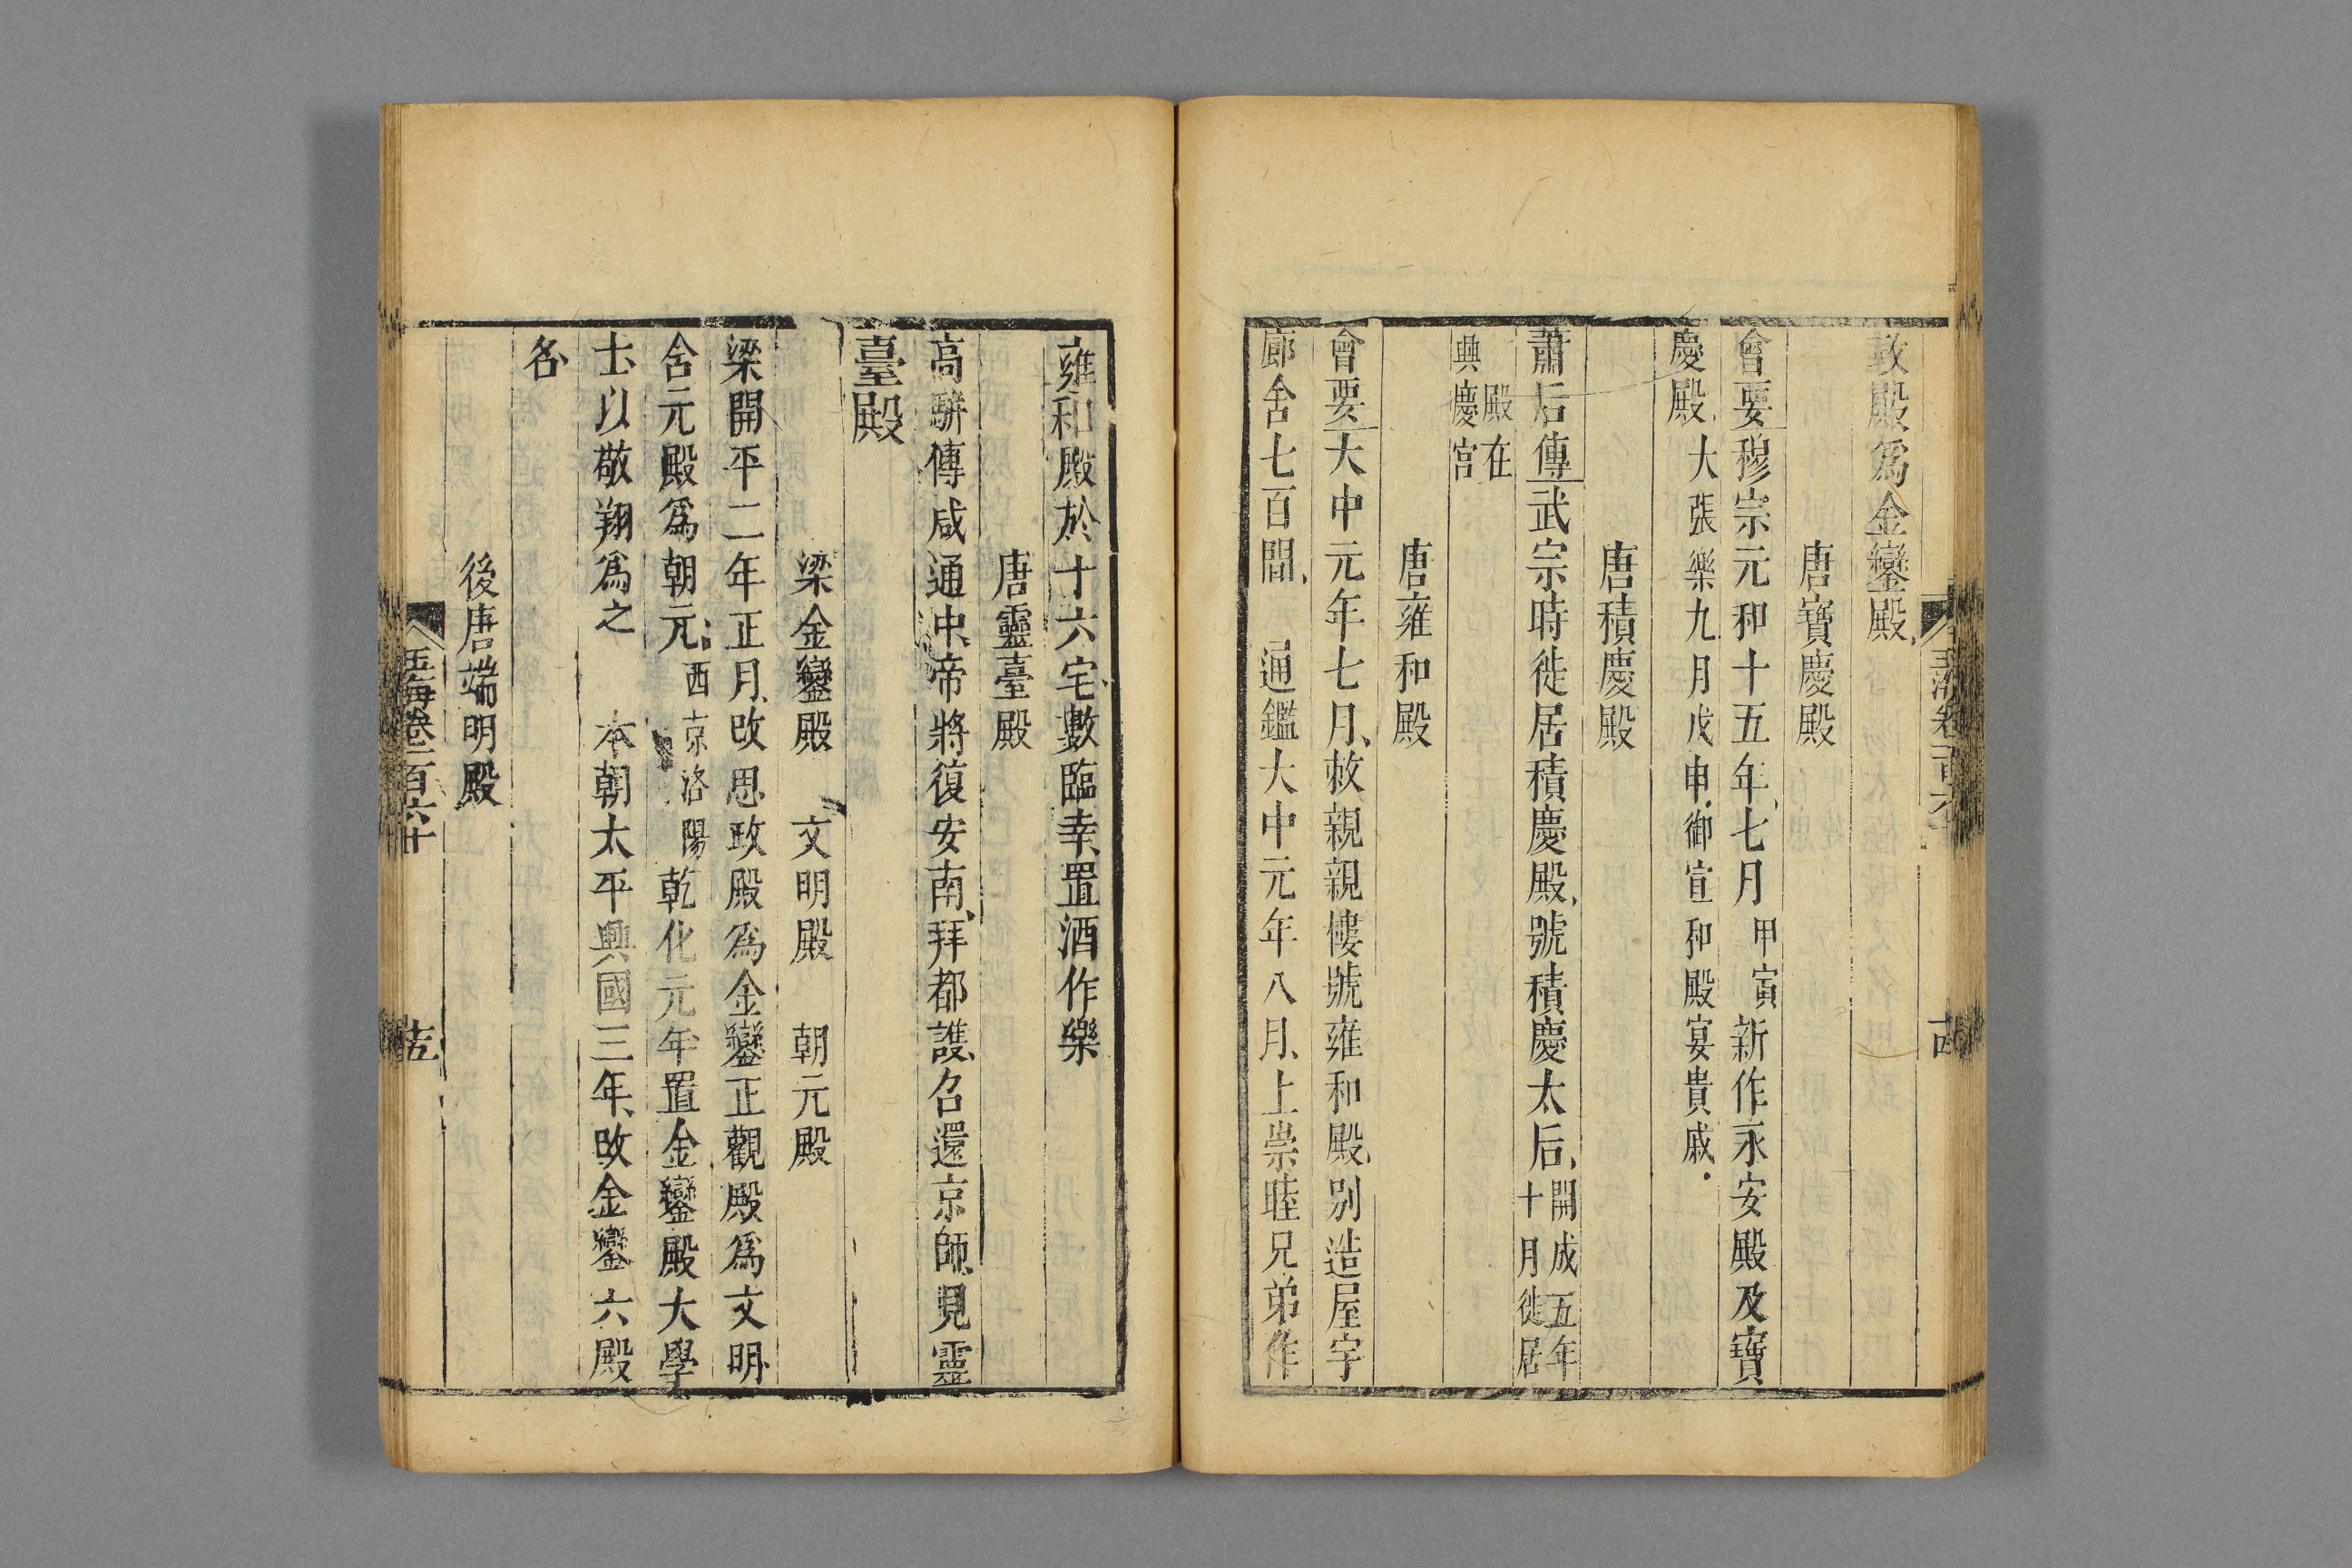 政殿爲金鑾殿
唐寶慶殿
會要穆宗元和十五年七月甲寅新作永安殿及寶
慶殿大張樂九月戊申御宣和殿宴貴戚
唐積慶殿
蕭后傳武宗時徙居積慶殿號積慶太后開成五年十月徙居
殿在興慶宮
唐雍和殿
會要大中元年七月敕親親樓號雍和殿別造屋宇
廊舍七百間 通鑑大中元年八月上崇睦兄弟作
雍和殿於十六宅數臨幸置酒作樂
唐靈臺殿
高駢傳咸通中帝將復安南拜都護召還京師見靈
臺殿
梁金鑾殿 文明殿 朝元殿
梁開平二年正月改思政殿爲金鑾正觀殿爲文明
含元殿爲朝元西京洛陽乾化元年置金鑾殿大學
士以敬翔爲之 本朝太平興國三年改金鑾六殿
名
後唐端明殿
玉海卷一百六十
十五